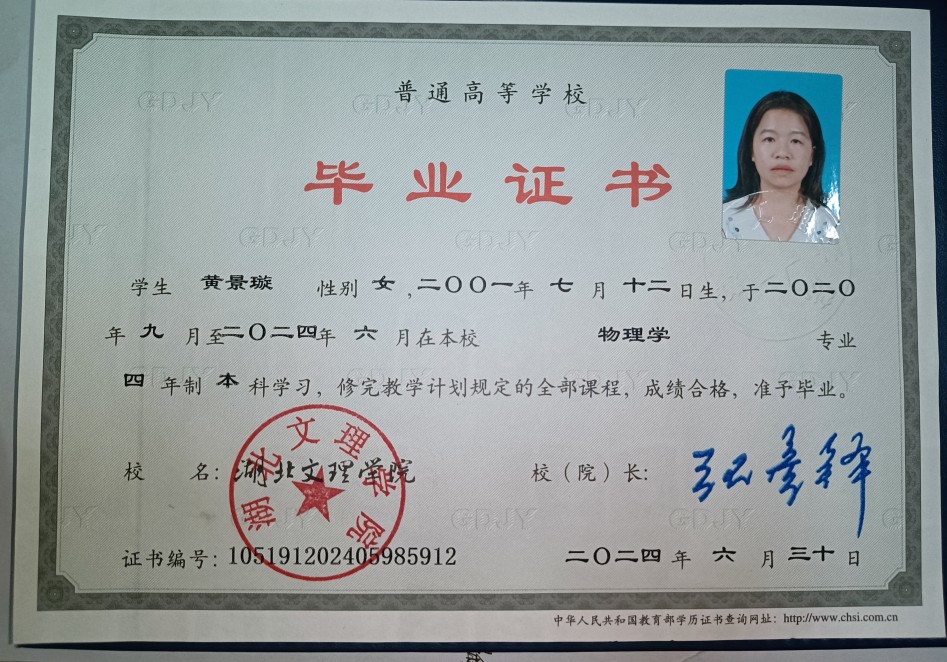 普通高等学校
毕业证书
学生 黄景璇 性别 女，二〇〇一年 七 月 十二日生，于二〇二〇
年 九 月至二〇二四年 六 月在本校 物理学 专业
四 年制 本 科学习，修完教学计划规定的全部课程，成绩合格，准予毕业。
湖北文理学院
校 名：湖北文理学院 校（院）长：
证书编号：105191202405985912 二〇二四 年 六 月 三十 日
中华人民共和国教育部学历证书查询网址：http://www.chsi.com.cn
GDJY GDJY GDJY
GDJY GDJY GDJY
GDJY GDJY